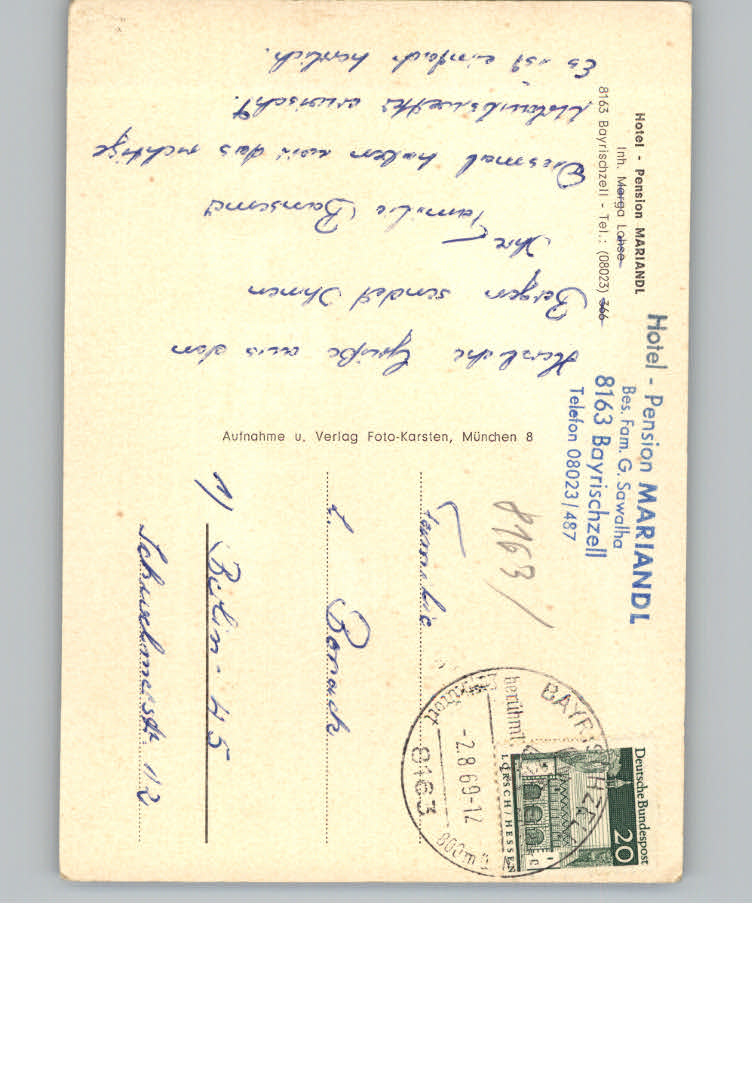 Hotel - Pension MARIANDL
Inh. Marga Lohse
8163 Bayrischzell - Tel.: (08023) 366
Hotel - Pension MARIANDL
Bes. Fam. G. Sawalha
8163 Bayrischzell
Telefon 08023/487
Herzliche Grüße aus den
Bergen sendet Ihnen
Ihre
Familie
Diesmal haben wir das richtige
Urlaubswetter erwischt.
Es ist einfach herrlich.
Aufnahme u. Verlag Foto-Karsten, München 8
Deutsche Bundespost
20
LORSCH/HESSEN
BAYRISCHZELL
berühmt
-2.8.69-12
8163
800m
8163
Familie
1) Berlin 45
12